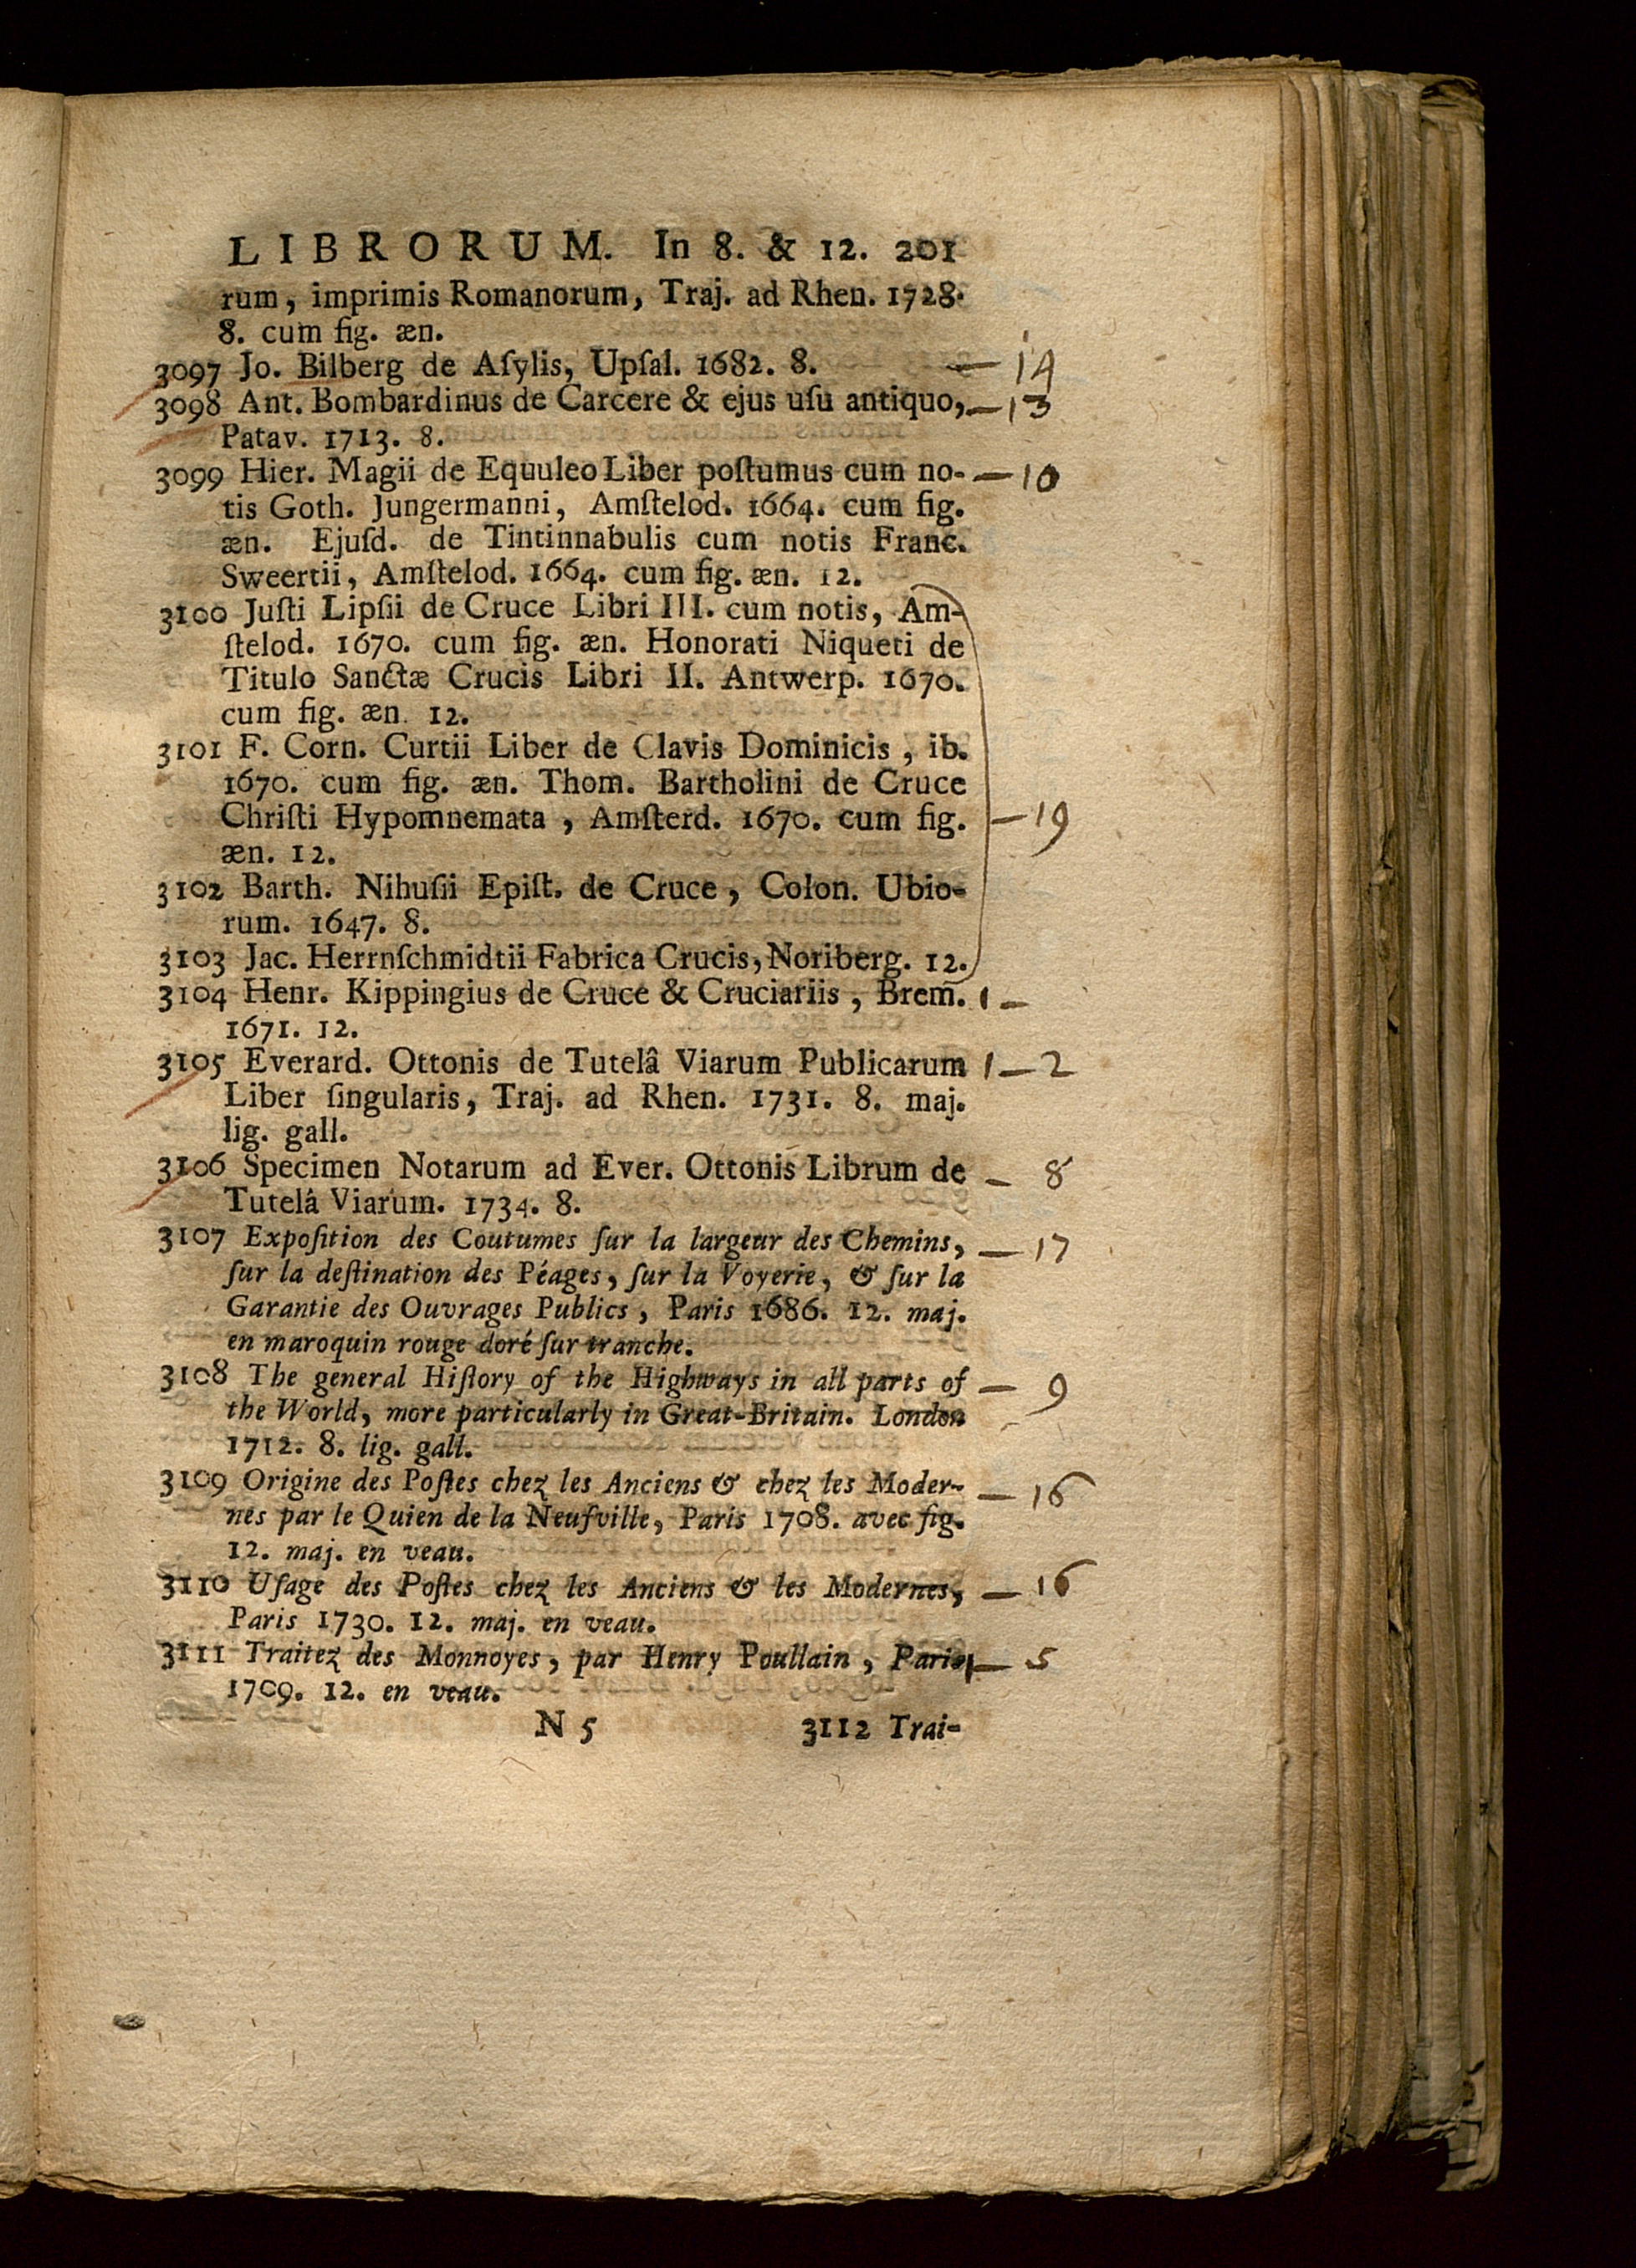 LIBRORUM. In 8. & 12. 201
rum, imprimis Romanorum, Traj. ad Rhen. 1728.
8. cum fig. æn.
3097 Jo. Bilberg de Aſylis, Upſal. 1682. 8. — 14
3098 Ant. Bombardinus de Carcere & ejus uſu antiquo, — 13
Patav. 1713. 8.
3099 Hier. Magii de Equuleo Liber poſtumus cum no- — 10
tis Goth. Jungermanni, Amſtelod. 1664. cum fig.
æn. Ejuſd. de Tintinnabulis cum notis Franc.
Sweertii, Amſtelod. 1664. cum fig. æn. 12.
3100 Juſti Lipſii de Cruce Libri III. cum notis, Am-
ſtelod. 1670. cum fig. æn. Honorati Niqueti de
Titulo Sanctæ Crucis Libri II. Antwerp. 1670.
cum fig. æn. 12.
3101 F. Corn. Curtii Liber de Clavis Dominicis, ib.
1670. cum fig. æn. Thom. Bartholini de Cruce
Chriſti Hypomnemata, Amſterd. 1670. cum fig. — 19
æn. 12.
3102 Barth. Nihuſii Epiſt. de Cruce, Colon. Ubio-
rum. 1647. 8.
3103 Jac. Herrnſchmidtii Fabrica Crucis, Noriberg. 12.
3104 Henr. Kippingius de Cruce & Cruciariis, Brem. 1 —
1671. 12.
3105 Everard. Ottonis de Tutelâ Viarum Publicarum 1 — 2
Liber ſingularis, Traj. ad Rhen. 1731. 8. maj.
lig. gall.
3106 Specimen Notarum ad Ever. Ottonis Librum de — 8
Tutelâ Viarum. 1734. 8.
3107 Expoſition des Coutumes ſur la largeur des Chemins, — 17
ſur la deſtination des Péages, ſur la Voyerie, & ſur la
Garantie des Ouvrages Publics, Paris 1686. 12. maj.
en maroquin rouge doré ſur tranche.
3108 The general Hiſtory of the Highways in all parts of — 9
the World, more particularly in Great-Britain. London
1712. 8. lig. gall.
3109 Origine des Poſtes chez les Anciens & chez les Moder- — 16
nes par le Quien de la Neufville, Paris 1708. avec fig.
12. maj. en veau.
3110 Uſage des Poſtes chez les Anciens & les Modernes, — 16
Paris 1730. 12. maj. en veau.
3111 Traitez des Monnoyes, par Henry Poullain, Paris — 5
1709. 12. en veau.
N 5 3112 Trai-